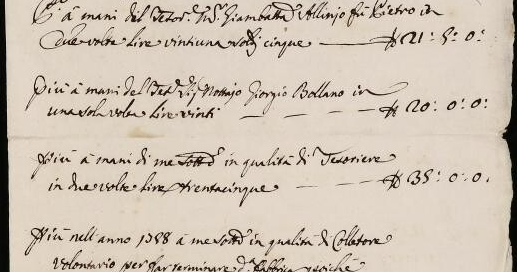 E à mani del Tesor.e Sig.r Giambatt.a Allinjo fù Pietro in
due volte Lire vintiuna soldi cinque — ₶ 21: 5: 0:
Più à mani del Sig.r Nottajo Giorgio Bollano in
una sola volta Lire vinti — ₶ 20: 0: 0:
Più à mani di me sott.o in qualità di Tesoriere
in due volte Lire trentacinque — ₶ 35: 0: 0:
Più nell'anno 1788 à me sott.o in qualità di Colletore
volontario per far terminare d.a fabbrica